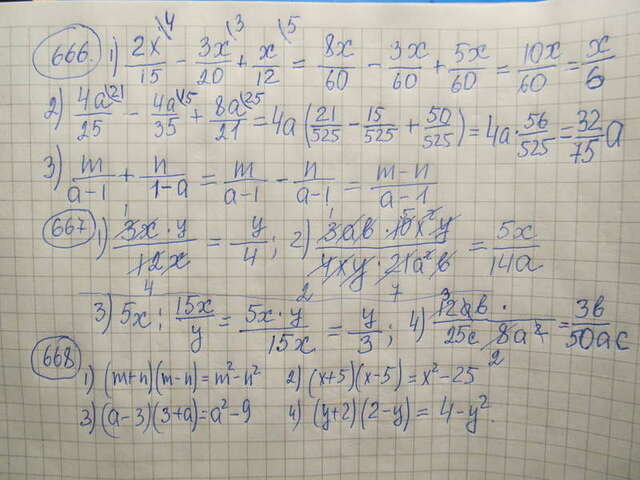 666. 1) 2x\4/15 - 3x\3/20 + x\5/12 = 8x/60 - 3x/60 + 5x/60 = 10x/60 = x/6
2) 4a\21/25 - 4a\15/35 + 8a\25/21 = 4a(21/525 - 15/525 + 50/525) = 4a·56/525 = 32/75 a
3) m/a-1 + n/1-a = m/a-1 - n/a-1 = m-n/a-1
667 1) 3x·y/12x = y/4; 2) 3ab·10x²y/4xy·21a²b = 5x/14a
3) 5x : 15x/y = 5x·y/15x = y/3; 4) 12ab·/25c·8a² = 3b/50ac
668 1) (m+n)(m-n)=m²-n² 2) (x+5)(x-5)=x²-25
3) (a-3)(3+a)=a²-9 4) (y+2)(2-y)=4-y².